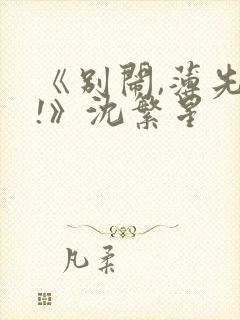 《别闹,薄先
!》沈繁星
凡柔